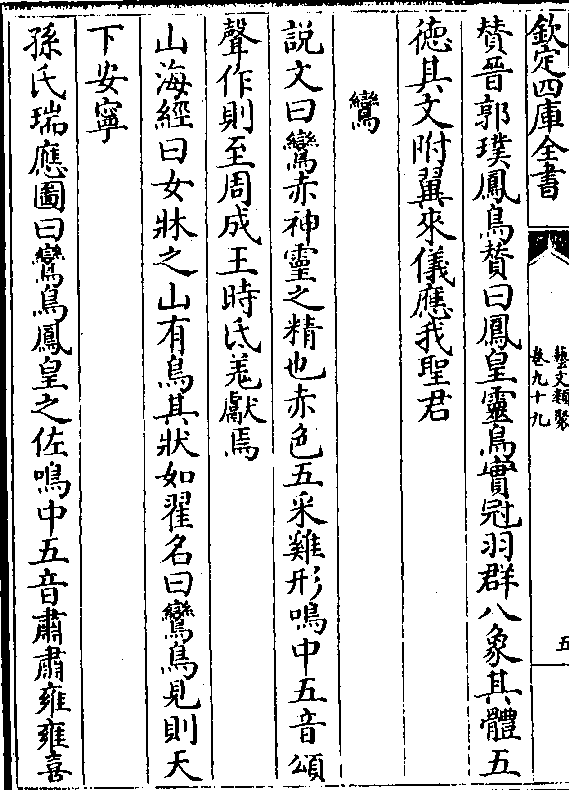 欽定四庫全書
藝文類聚
卷九十九
五
賛晉郭璞鳳鳥賛曰鳳皇靈鳥實冠羽群八象其體五
徳其文附翼來儀應我聖君
鸞
説文曰鸞赤神靈之精也赤色五采雞形鳴中五音頌
聲作則至周成王時氐羗獻焉
山海經曰女牀之山有鳥其狀如翟名曰鸞鳥見則天
下安寧
孫氏瑞應圖曰鸞鳥鳳皇之佐鳴中五音肅肅雍雍喜